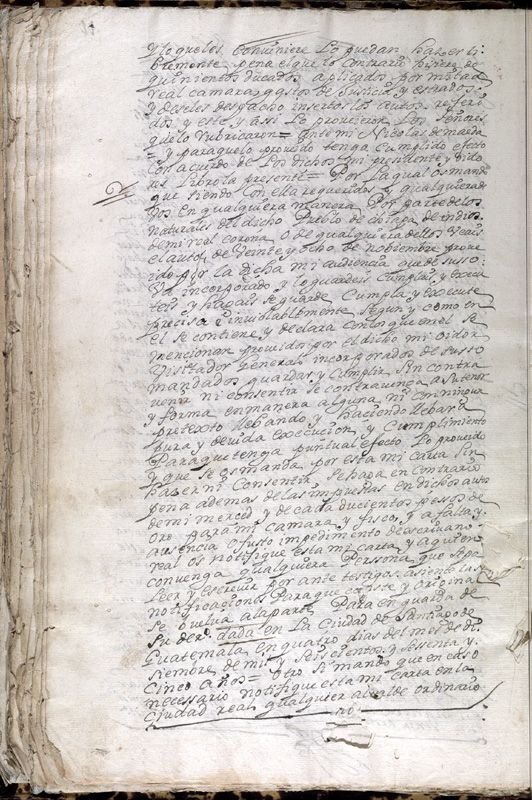 y lo que les conviniere Lo puedan hazer li
bremente pena el que lo contrario hiziere de
quinientos ducados aplicados por mitad
real camara gastos de Justicia y estrados
y deseles despacho insertos los autos referi
dos y este y assi Lo proveieron Los Señores
que lo rubricaron = Ante mi Nicolas de maeda
= y para que lo proveido tenga Cumplido efecto
con acuerdo de Los dichos mi presidente y oido
res Libro la presente = Por La qual os mando
que siendo con ella requeridos y qualquiera de
vos en qualquiera manera Por parte de los
naturales del dicho Pueblo de chiapa de indios
de mi real corona o de qualquiera dellos Veais
el auto de Veinte y ocho de noviembre prove
ido por la dicha mi audiencia que de suso
Va incorporado y lo guardeis cumplais y execu
teis y hagais se guarde Cumpla y execute
precisa e inviolablemente Segun y como en
el se contiene y declara con los que en el se
mencionan proveidos por el dicho mi oidor
Visitador General incorporados de suso
mandados guardar y cumplir sin contra
venir ni consentir se contravenga a su tenor
y forma en manera alguna ni con ningun
pretexto llebando y haciendo llebar a
pura y devida execucion y cumplimiento
Para que tenga puntual efecto Lo proveido
y que se os manda por esta mi carta sin
hazer ni Consentir se haga en contrario
pena ademas de las impuestas en dichos autos
de mi merced y de cada ducientos pessos de
oro para mi camara y fisco, y a falta y
ausencia o justo impedimento de escrivano
real os notifique esta mi carta y a quien
convenga qualquiera Persona que sepa
leer y escrevir por ante testigos asiente las
notificaciones Para que conste y original
se vuelva a la parte Para en guarda de
su derº dada en La Ciudad de Santiago de
Guatemala en quatro dias del mes de di
siembre de mil y seiscientos y sesenta y
Cinco años = otro si mando que en caso
necessario notifique esta mi carta en la
ciudad real qualquier alcalde ordinario